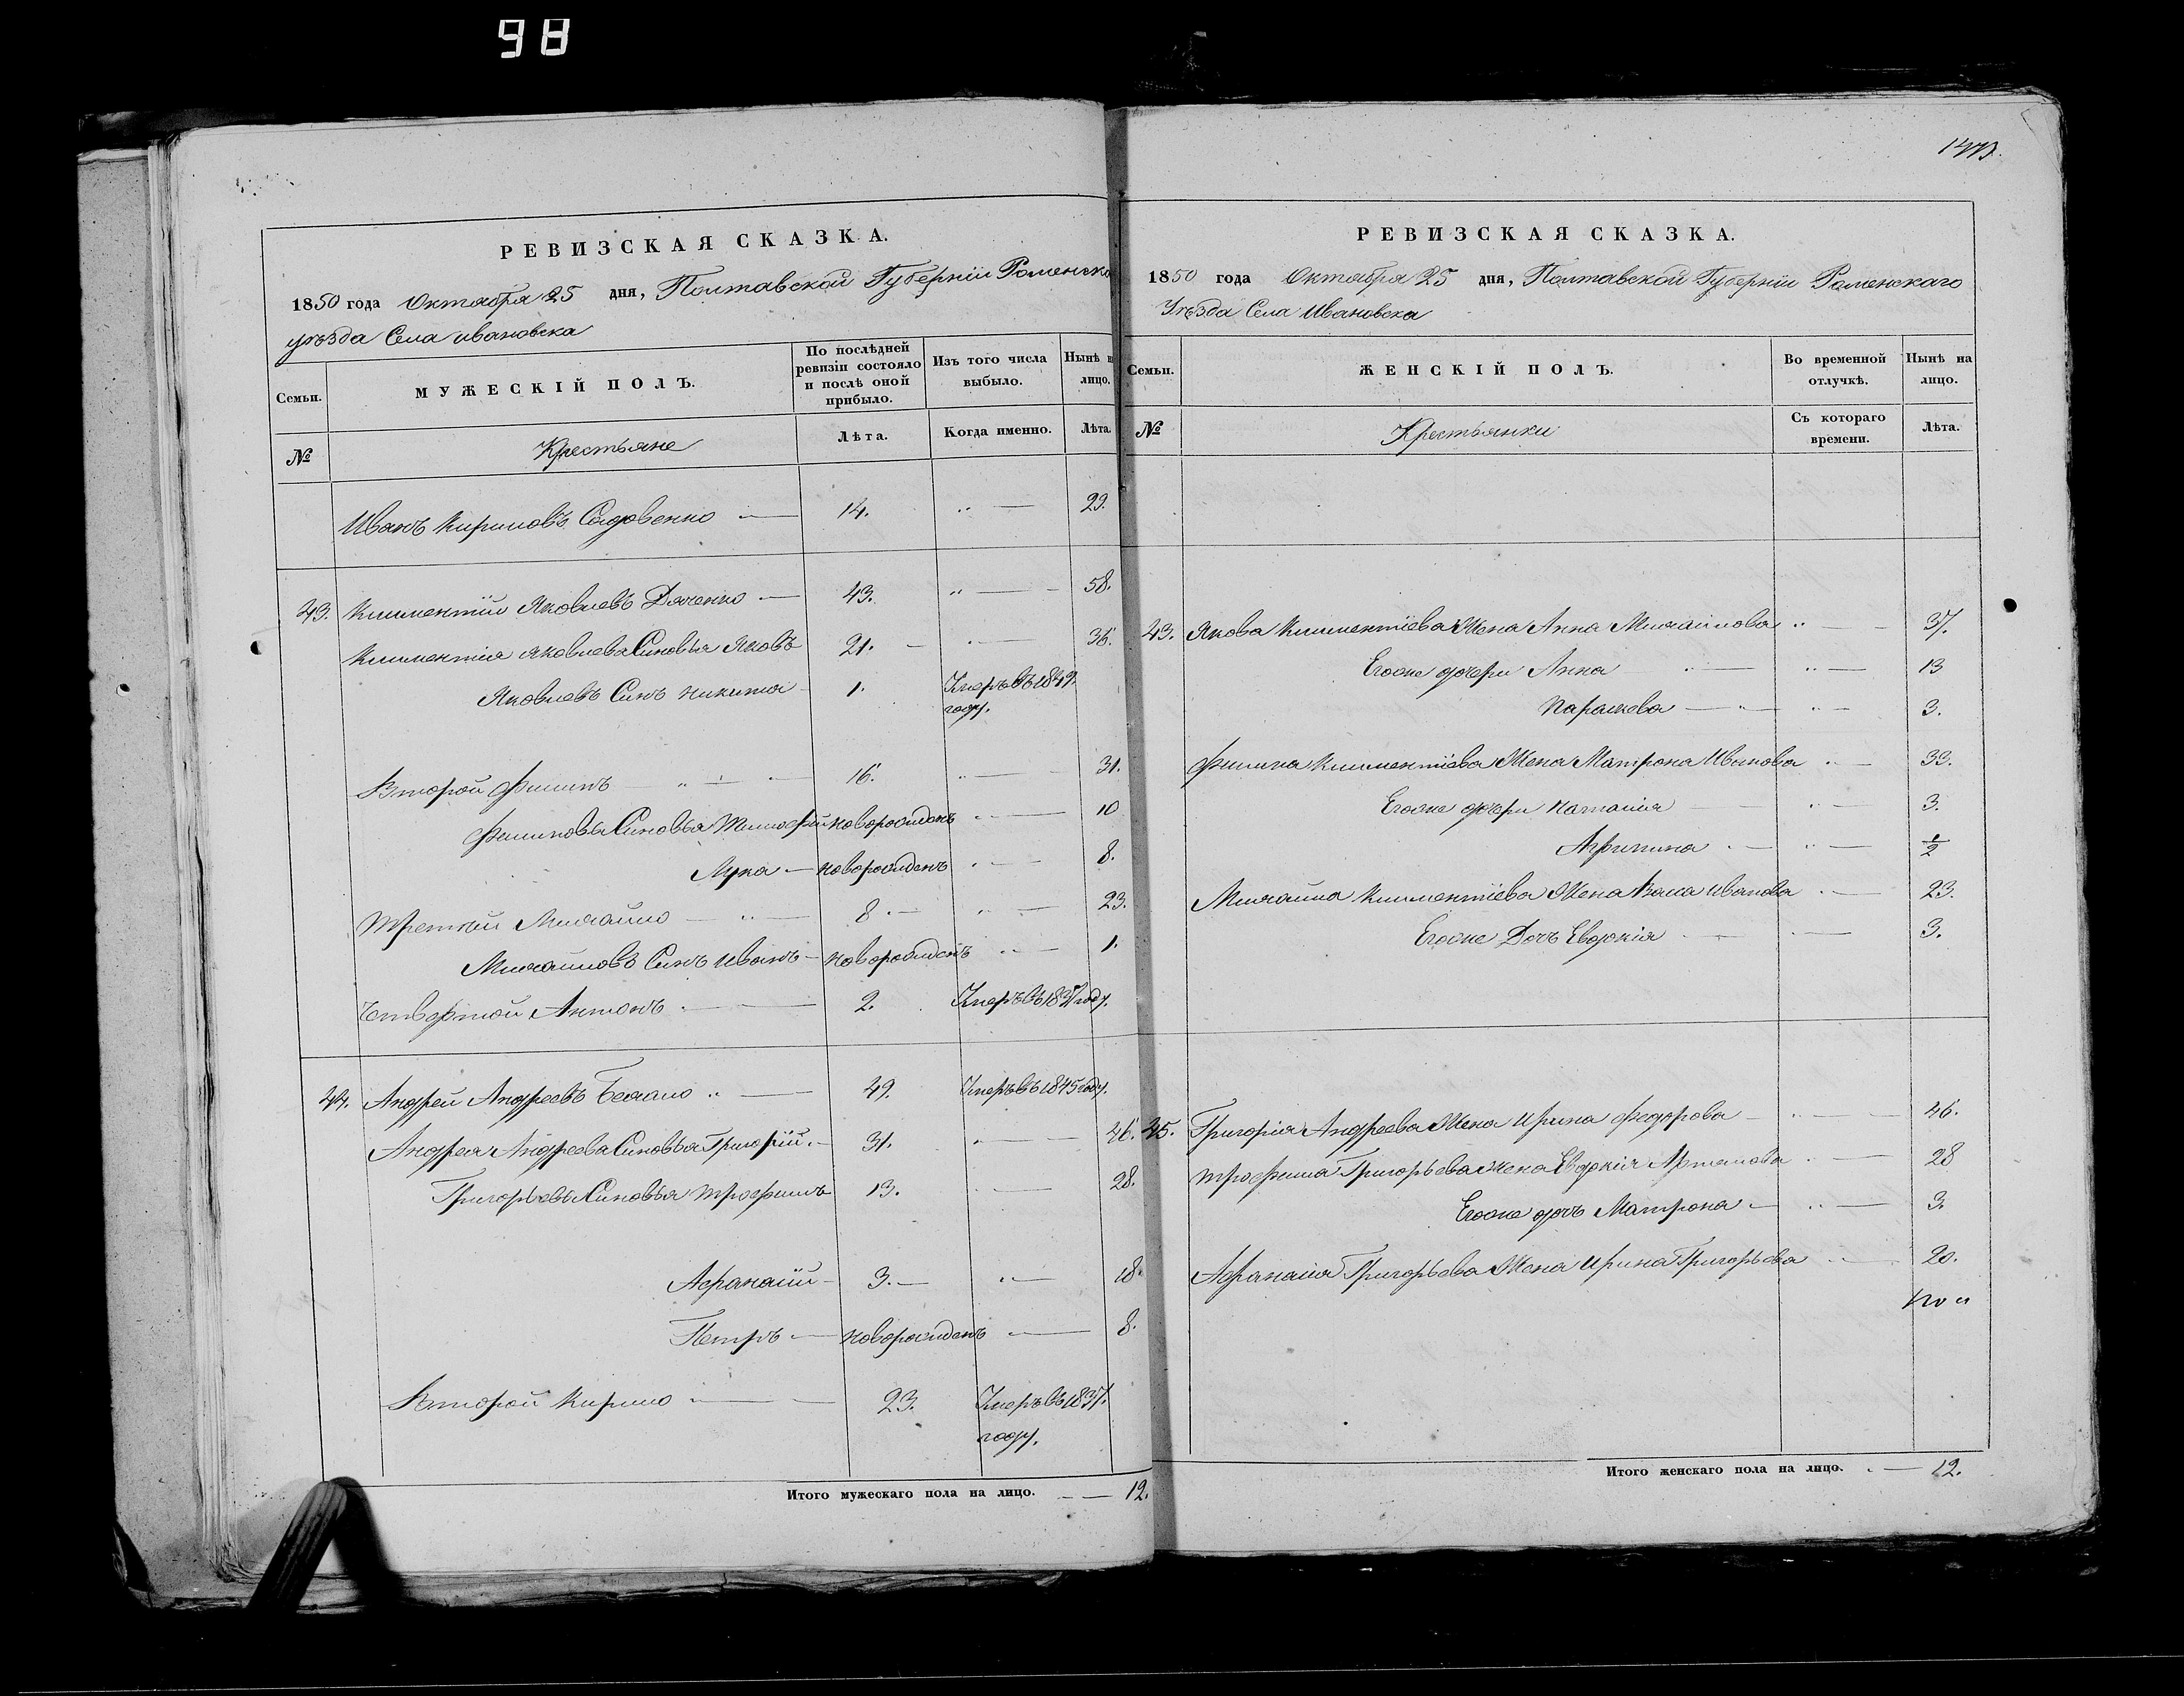 98
РЕВИЗСКАЯ СКАЗКА.
1850 года Октября 25 дня, Полтавской Губерніи Роменска
уѣзда Села ивановска
Семьи.
МУЖЕСКІЙ ПОЛЪ.
По послѣдней ревизіи состояло и послѣ оной прибыло.
Изъ того числа выбыло.
Нынѣ н лицо.
№
Крестьяне
Лѣта.
Когда именно.
Лѣта.
Иванъ Кириловъ Садовенко — 14. „ — 29.
43. Климентій Яковлевъ Дяченко — 43. „ — 58.
Климентія Яковлева Синовья Яковъ 21. — „ — 36.
Яковлевъ Синъ Никита 1. Умеръ въ 1849
году.
Второй Филипъ — „ — 16. „ — 31.
Филиповы Синовья Тимофій новорожденъ „ — 10
Лука — новорожденъ „ — 8.
Третий Михайло — „ — 8. — „ — 23.
Михайловъ Синъ Иванъ — новорожденъ „ — 1.
Четвертой Антонъ — 2. Умеръ въ 1837 году.
44. Андрей Андреевъ „ — 49. Умеръ въ 1845 году.
Андрея Андреева Синовья Григорій — 31. „ — 46.
Григорьевы Синовья Трофимъ 13. — 28.
Афанасій — 3. — „ — 18.
Петръ — новорожденъ „ — 8.
Второй Кирило „ — 23. Умеръ въ 1837.
году.
Итого мужескаго пола на лицо. — — 12.
РЕВИЗСКАЯ СКАЗКА.
1850 года Октября 25 дня, Полтавской Губерніи Роменскаго
Уѣзда Села Ивановска
Семьи.
ЖЕНСКІЙ ПОЛЪ.
Во временной отлучкѣ.
Нынѣ на лицо.
№
Крестьянки
Съ котораго времени.
Лѣта.
43. Якова Климентіева Жена Анна Михайлова „ — 37.
Егоже дочери Анна „ — „ — 13
Параскева — „ — „ — 3.
Филипа Климентіева Жена Матрона Иванова „ — 33.
Егоже дочери Наталія — „ — 3.
Агрипина „ — „ — 1/2
Михайла Климентіева Жена Васа Иванова „ — 23.
Егоже Дочъ Евдокія „ — „ — 3.
45. Григорія Андреева Жена Ирина Федорова — „ — 46.
Трофима Григорьева Жена Евдокія Артемова „ — 28
Егоже дочъ Матрона „ — „ — 3.
Афанасія Григорьева Жена Ирина Григорьева „ — 20.
Итого женскаго пола на лицо. „ — 12.